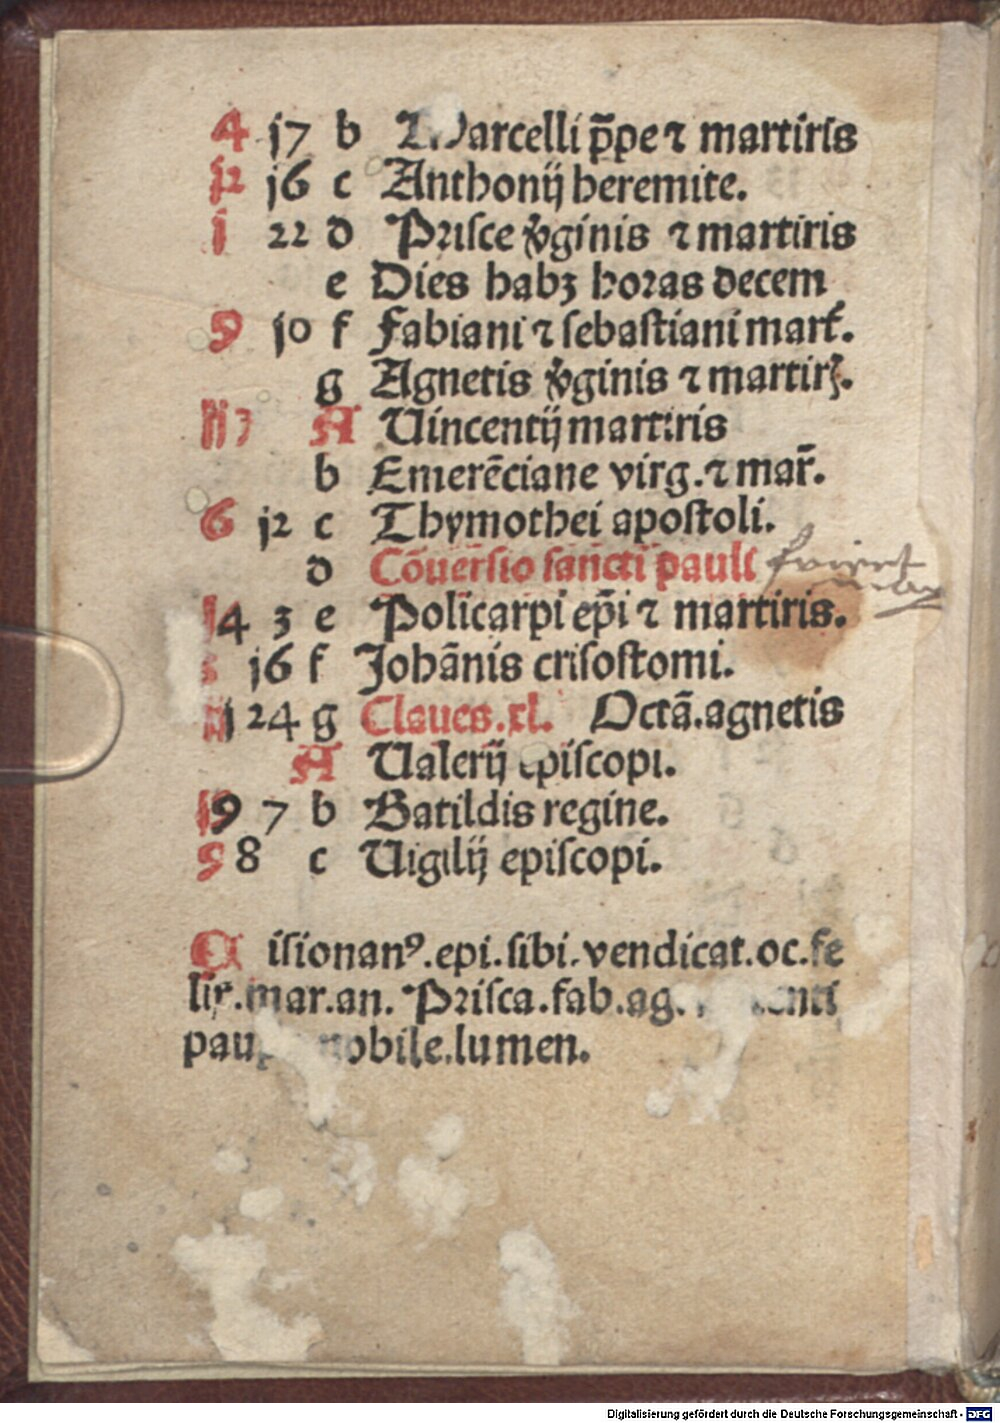 4 j7 b Marcelli p̄pe ⁊ martiris
j2 j6 c Anthonij heremite.
j 22 d Priſce v̓ginis ⁊ martiris
e Dies habꝫ horas decem
9 j0 f Fabiani ⁊ ſebaſtiani mart̓.
g Agnetis v̓ginis ⁊ martirꝭ.
3 A Uincentij martiris
b Emerēciane virg. ⁊ mar̄.
6 j2 c Thymothei apoſtoli.
d Cōuerſio ſancti pauli
j4 3 e Policarpi ep̄i ⁊ martiris.
j6 f Johānis criſoſtomi.
24 g Claues.xl. Octā.agnetis
A Ualerij epiſcopi.
j9 7 b Batildis regine.
8 c Uigilij epiſcopi.
C iſionanꝰ.epi.ſibi.vendicat.oc.fe
lix.mar.an. Priſca.fab.ag.
nobile.lumen.
Digitalisierung gefördert durch die Deutsche Forschungsgemeinschaft - DFG